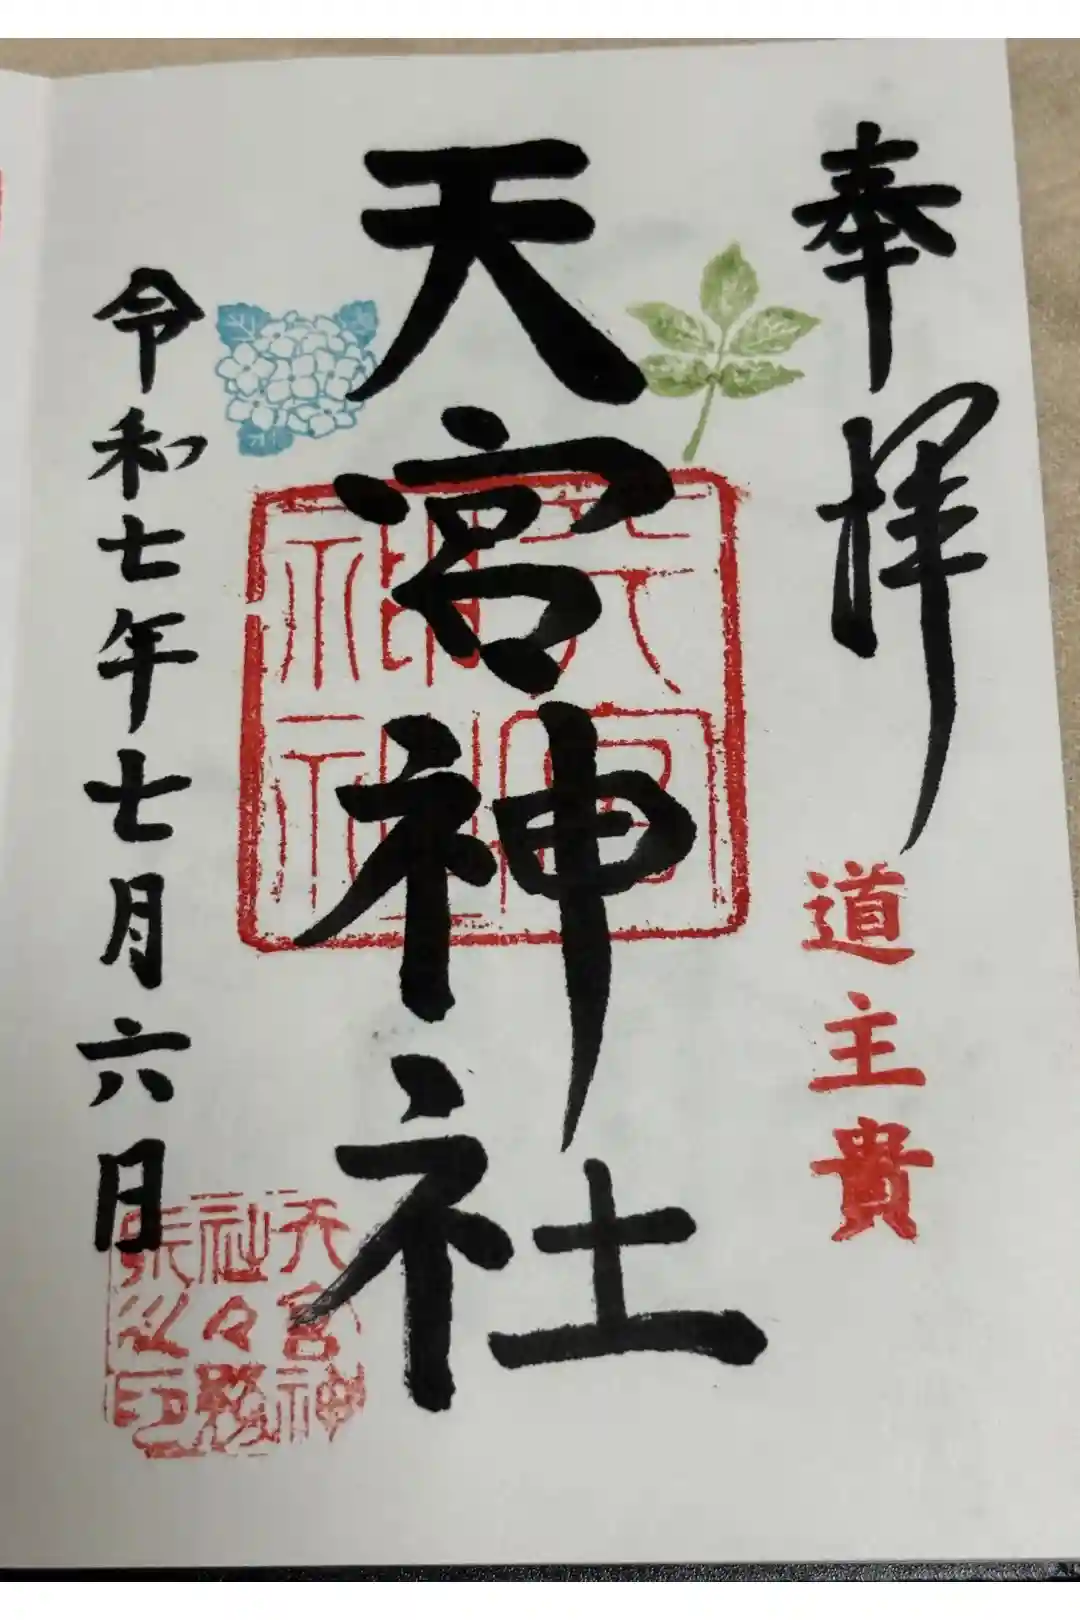 奉拝
道主貴
天宮神社
天宮神社
令和七年七月六日
天宮神
社々務
之印